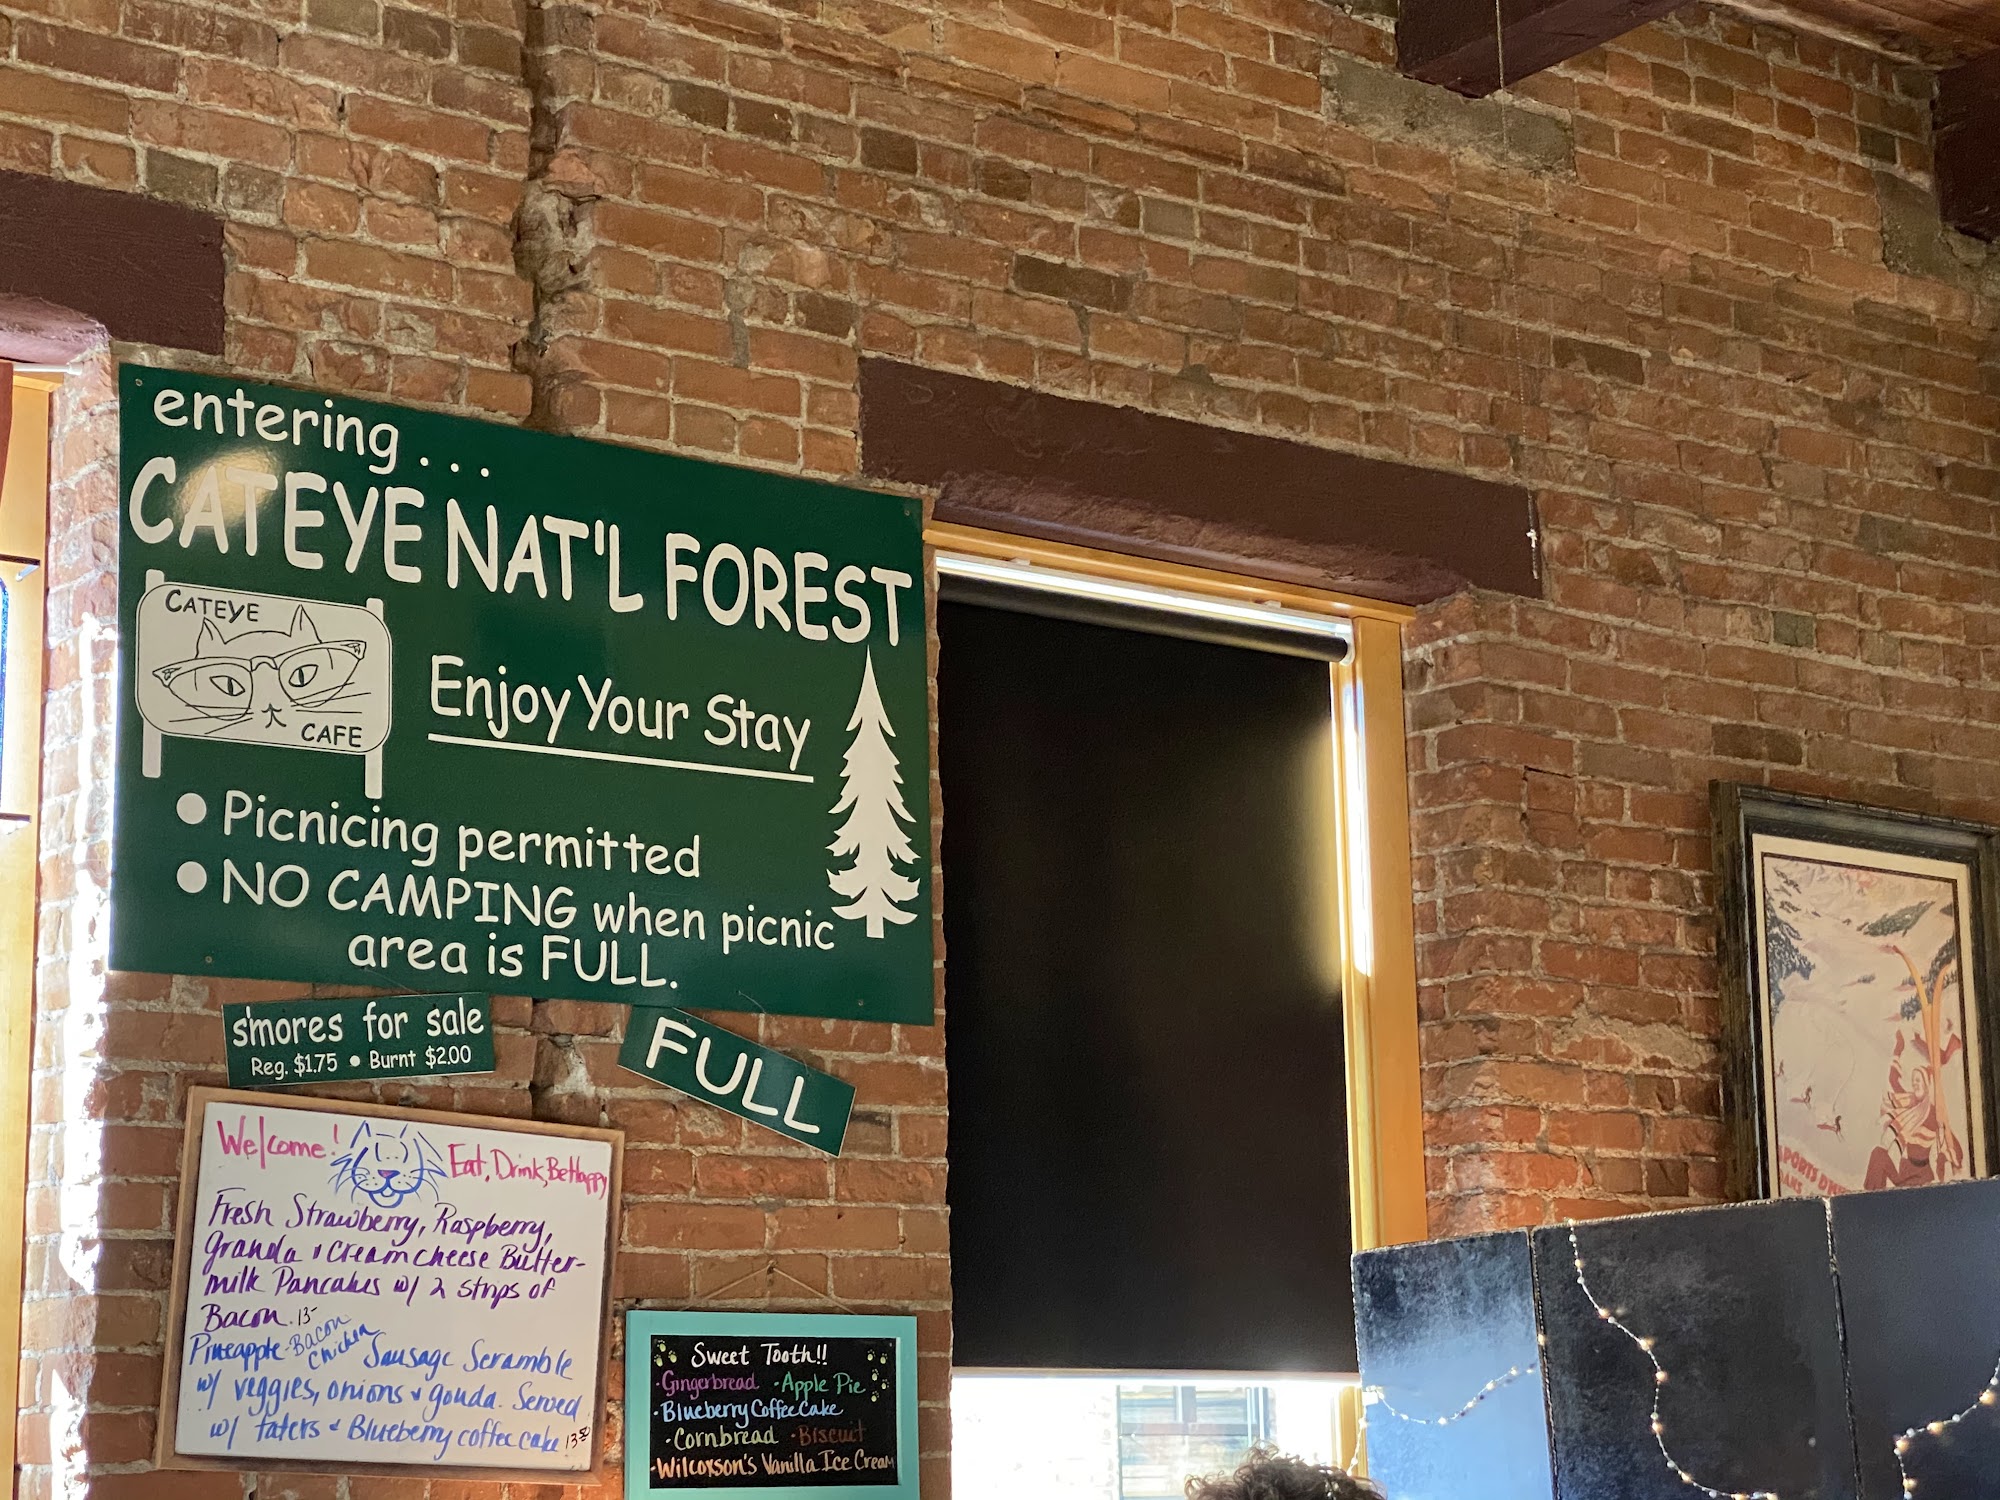 entering...
CATEYE NAT'L FOREST
CATEYE
CAFE
Enjoy Your Stay
• Picnicing permitted
• NO CAMPING when picnic
area is FULL.
s'mores for sale
Reg. $1.75 • Burnt $2.00
FULL
Welcome! Eat, Drink, Be Happy
Fresh Strawberry, Raspberry,
Granola & Cream cheese Butter-
milk Pancakes w/ 2 strips of
Bacon. 13-
Pineapple-Bacon
Chicken Sausage Scramble
w/ veggies, onions & gouda. Served
w/ taters & Blueberry coffee cake 13.50
Sweet Tooth!!
·Gingerbread ·Apple Pie
·Blueberry Coffee Cake
·Cornbread ·Biscuit
·Wilcoxson's Vanilla Ice Cream